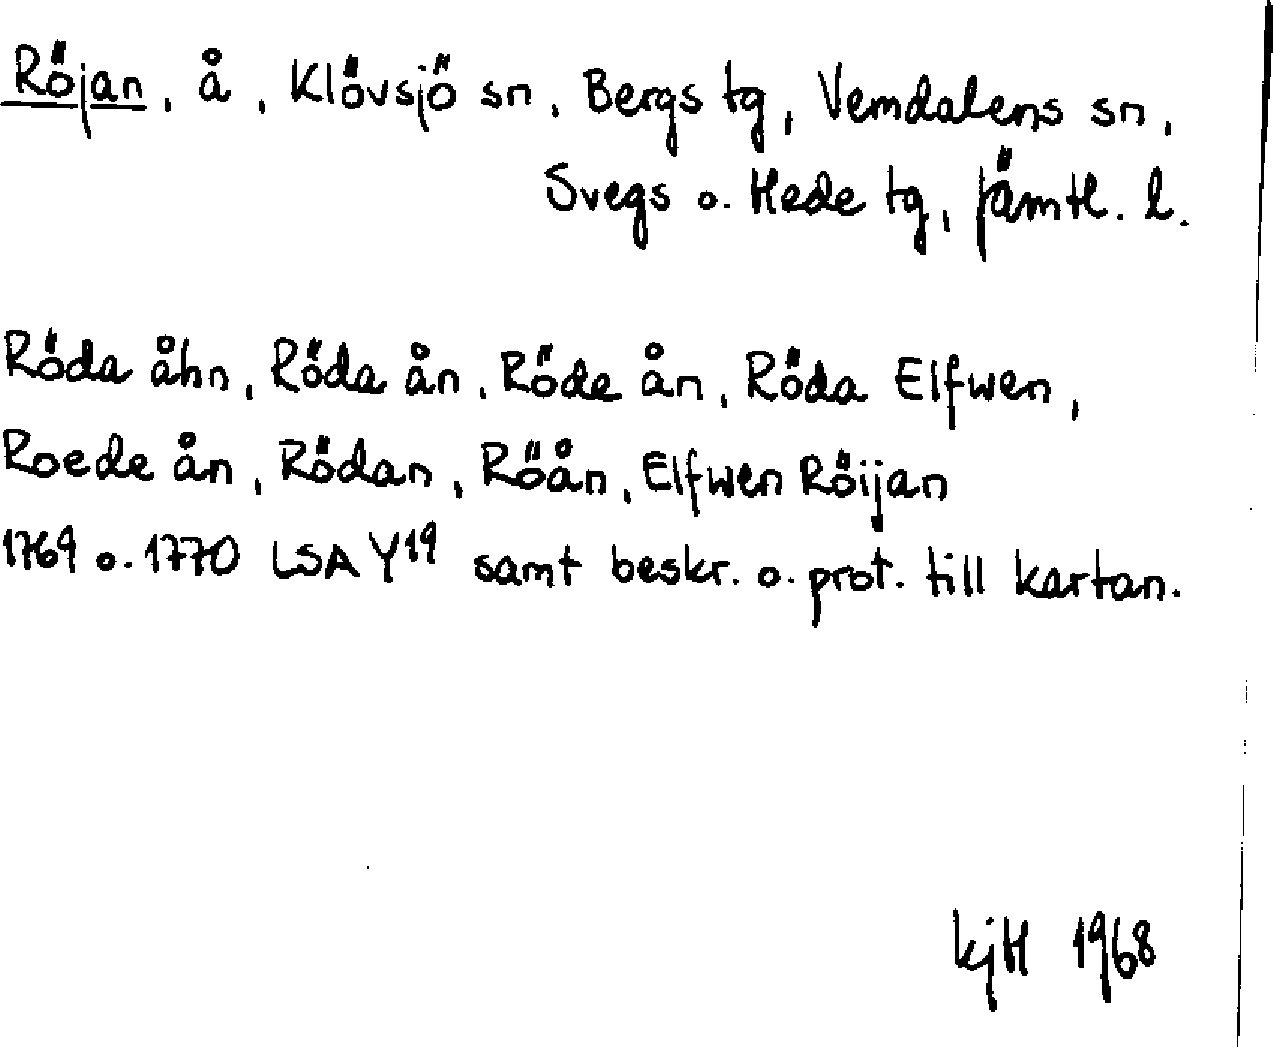 Röjan, å, Klövsjö sn, Bergs tg, Vemdalens sn,
Svegs o. Hede tg, Jämtl. l.
Röda åhn, Röda ån, Röde ån, Röda Elfwen,
Roede ån, Rödan, Röån, Elfwen Röijan
1769 o. 1770 LSA Y19 samt beskr. o. prot. till kartan.
kjH 1968